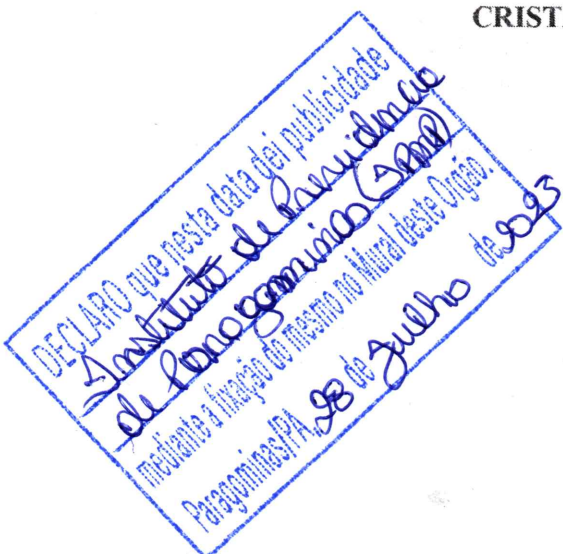 CRISTA
DECLARO que nesta data dei publicidade
Instituto de Previdencia
de Paragominas (IPMP)
mediante a fixação do mesmo no Mural deste Orgão.
Paragominas/PA, 28 de Julho de 2023